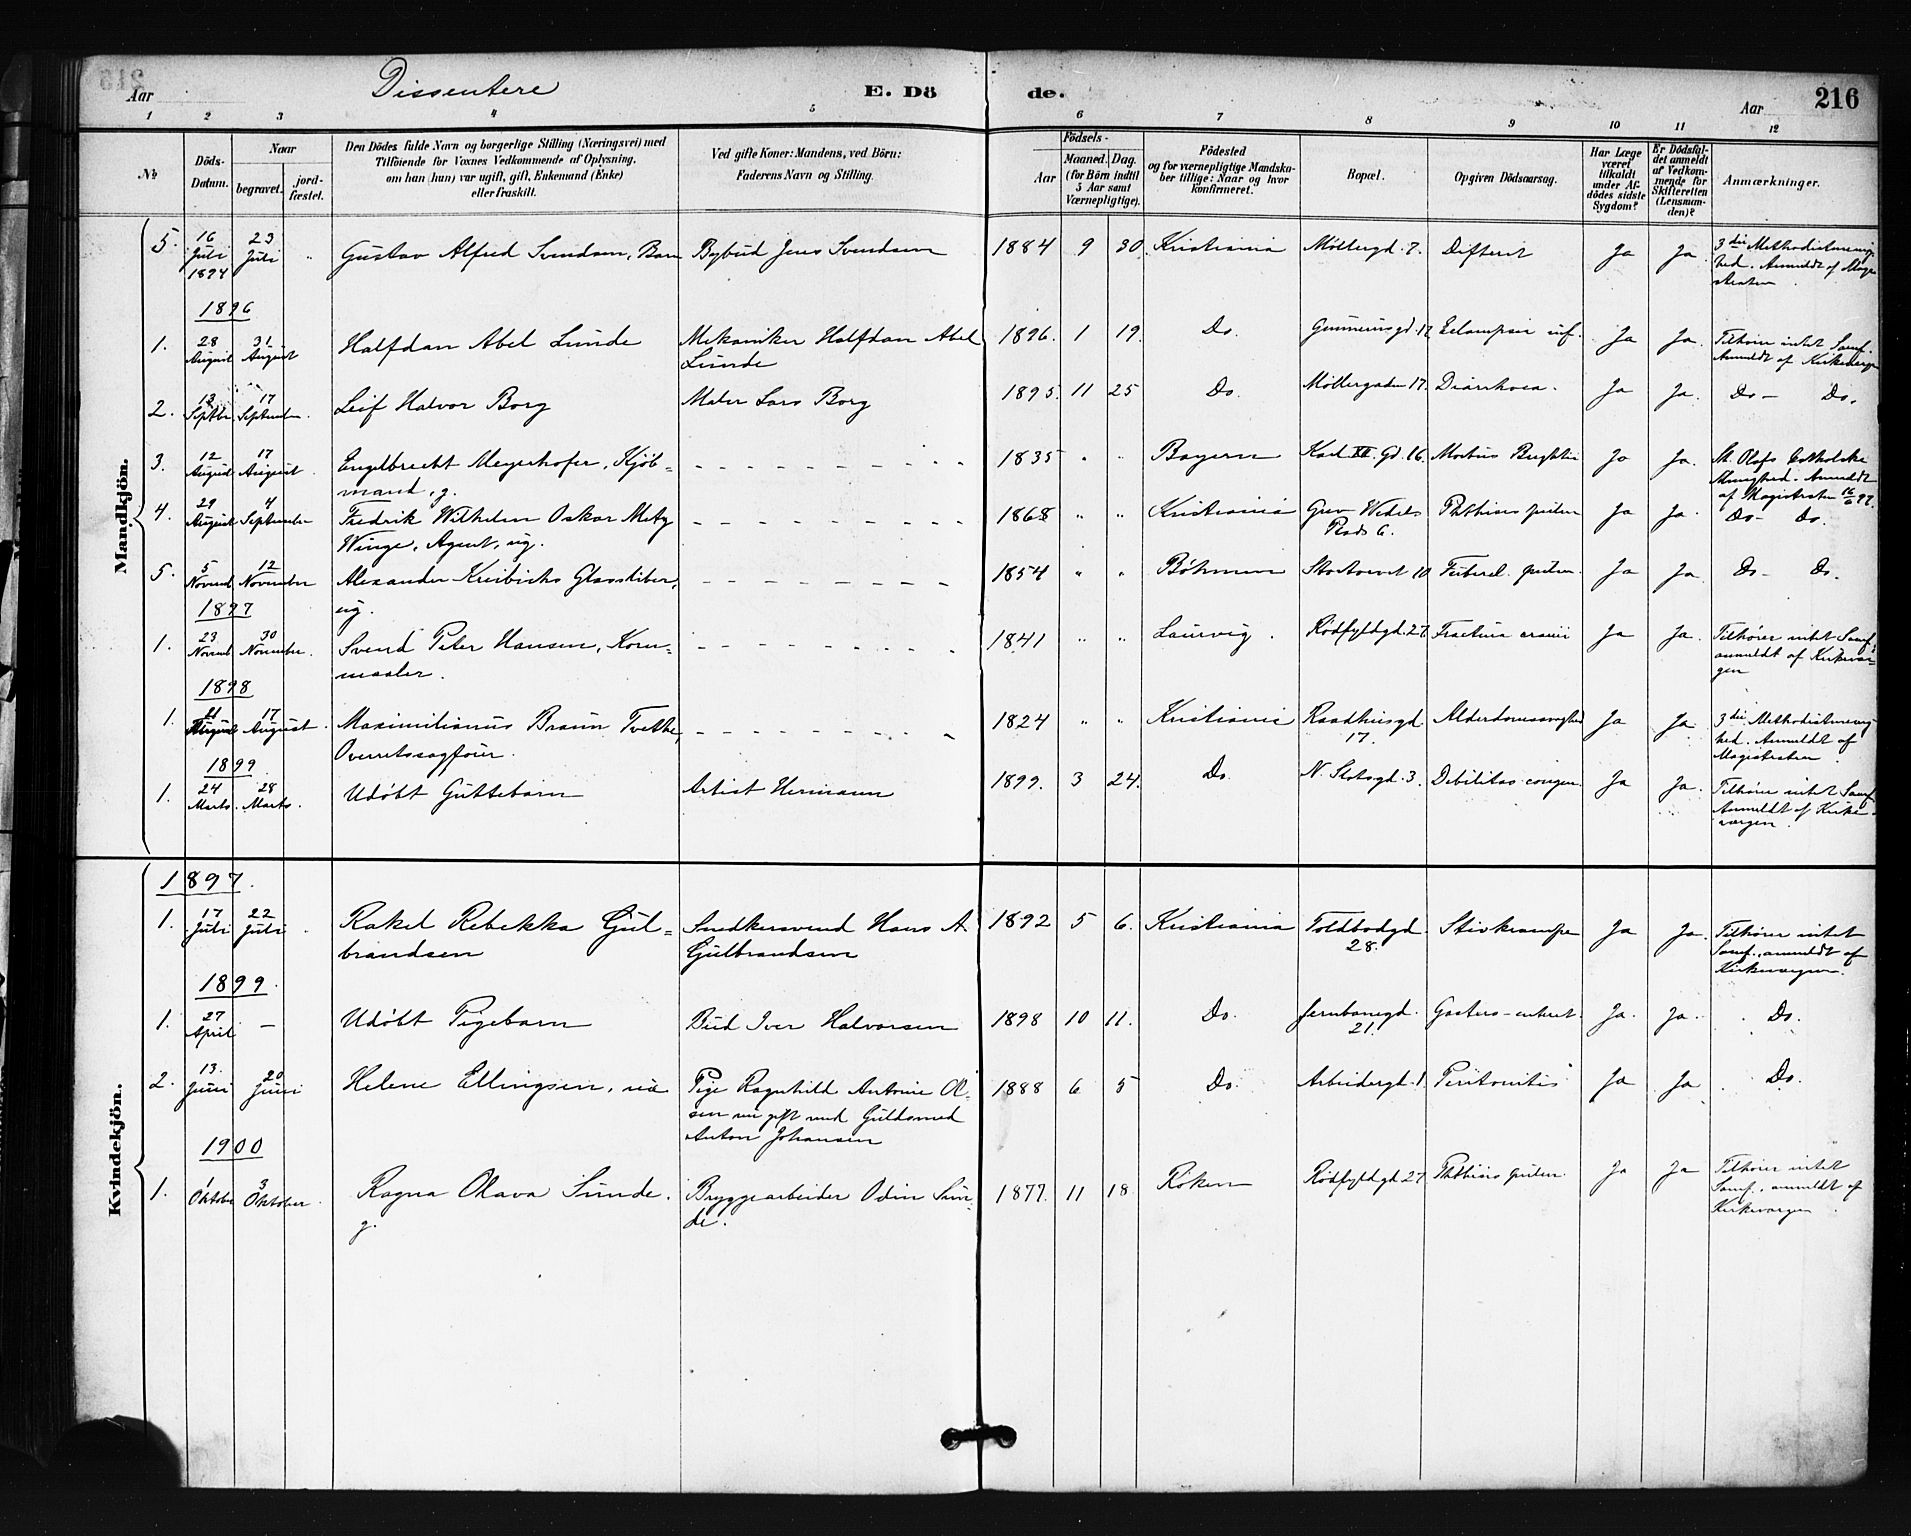 Aar Dissentere E. Dö de. Aar 216
1 2 3 4 5 6 7 8 9 10 11 12
№
Döds-Datum.
Naar
begravet.
jordfæstet.
Den Dödes fulde Navn og borgerlige Stilling (Næringsvei) med
Tilföiende for Voxnes Vedkommende af Oplysning,
om han (hun) var ugift, gift, Enkemand (Enke)
eller fraskilt.
Ved gifte Koner: Mandens, ved Börn:
Faderens Navn og Stilling.
Födsels-
Aar
Maaned. Dag.
(for Börn indtil
5 Aar samt
Værnepligtige).
Födested
og for værnepligtige Mandskaber tillige: Naar og hvor
konfirmeret.
Bopæl.
Opgiven Dödsaarsag.
Har Læge
været
tilkaldt
under Afdödes sidste
Sygdom?
Er Dödsfaldet anmeldt
af Vedkommende for
Skifteretten
(Lensmanden)?
Anmærkninger.
Mandkjön.
5. 16 Juli 1894 23 Juli " Gustav Alfred Svendsen, Barn Bybud Jens Svendsen 1884 9 30 Kristiania Møllergd. 7. Difterit Ja Ja. 3die Methodistmenighed. Anmeldt af Magistraten.
1896
1. 28 August 31 August Halfdan Abel Lunde Mekaniker Halfdan Abel Lunde 1896. 1 19. Do. Gunnerusgd. 12 Eclampsia inf. Ja Ja. Tilhører intet Samf. Anmeldt af Kirkevergen
2. 13 Septbr. 17 September. Leif Halvor Borg Maler Lars Borg 1895. 11 25 Do. Møllergaden 17. Diarrhoea. Ja Ja. Do – Do.
3. 12 August 17 August. Engelbrecht Meyerhofer, Kjöbmand, g. – – – 1835 " " Bayern Karl XII. Gd. 16. Morbus Brightii Ja Ja. St. Olafs Catholske Menighed. Anmeldt af Magistraten
4. 29 August 4 September Fredrik Wilhelm Oskar Metz Winge, Agent, ug. – – – 1868 " " Kristiania Grev Wedels Plads 6. Phthisis pulm Ja Ja. Do – Do.
5. 5 Novemb 12 November Alexander Kreibichs Glassliber, ug. – – – 1854 " " Böhmen Skostredet 10 Tubercl. pulm. Ja Ja. Do – Do.
1897
1. 23 Novemb 30 November. Svend Peter Hansen, Kornmaaler. – – – 1841 " " Laurvig. Rödfyldgd. 27. Fractura cranii Ja Ja. Tilhører intet Samf. anmeldt af Kirkevergen
1898
1. 11 August 17 August. Maximilianus Braun Tvethe, Overretssagfører. – – – 1824 " " Kristiania Raadhusgd 17. Alderdomssvaghed Ja Ja. 3die Methodistmenighed. Anmeldt af Magistraten.
1899.
1. 24 Marts. 28 Marts. Udöbt Guttebarn Artist Hermann 1899. 3 24. Do. N. Slotsgd. 3. Debilitas congen. Ja Ja. Tilhører intet Samf. Anmeldt af Kirkevergen.
Kvindekjön.
1897.
1. 17 Juli 22 Juli. Rakel Rebekka Gulbrandsen Snedkersvend Hans A. Gulbrandsen 1892 5 6. Kristiania Toldbodgd 28. Stivkrampe Ja Ja. Tilhører intet Samf., anmeldt af Kirkevergen.
1899.
1. 27 April – Udöbt Pigebarn Bud Iver Halvorsen 1898 10 11. Do. Jernbanegd. 21. Gastero-enterit. Ja. Ja. Do.
2. 13. Juni 20 Juni Helene Ellingsen, Pige Ragnhild Antonie Olsen nu gift med Guldsmed Anton Johansen 1888 6 5 Do. Arbeidergd. 1 Peritonitis Ja Ja. Do.
1900
1. 1 Oktober 3 Oktober. Ragna Olava Sunde. g. Bryggearbeider Odin Sunde. 1877. 11 18. Röken Rödfyldgd 27 Phthisis pulm. Ja Ja Tilhører intet Samf., anmeldt af Kirkevergen.